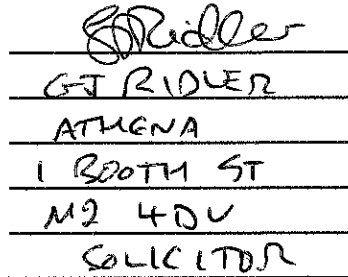 GJRidler
GJ RIDLER
ATHENA
1 BOOTH ST
M2 4DU
SOLICITOR